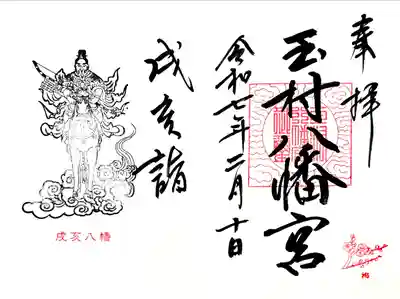 奉拝
玉村八幡宮
令和七年二月十日
戌亥詣
戌亥八幡